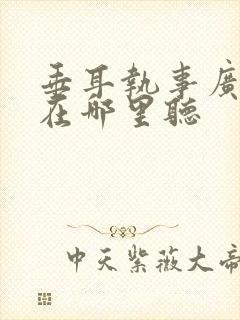 垂耳執事廣
在哪里聽
中天紫薇大帝